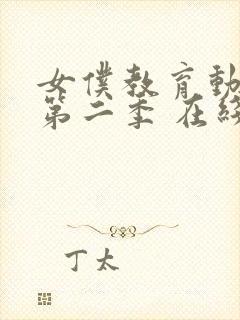 女僕教育動
第二季 在
丁太